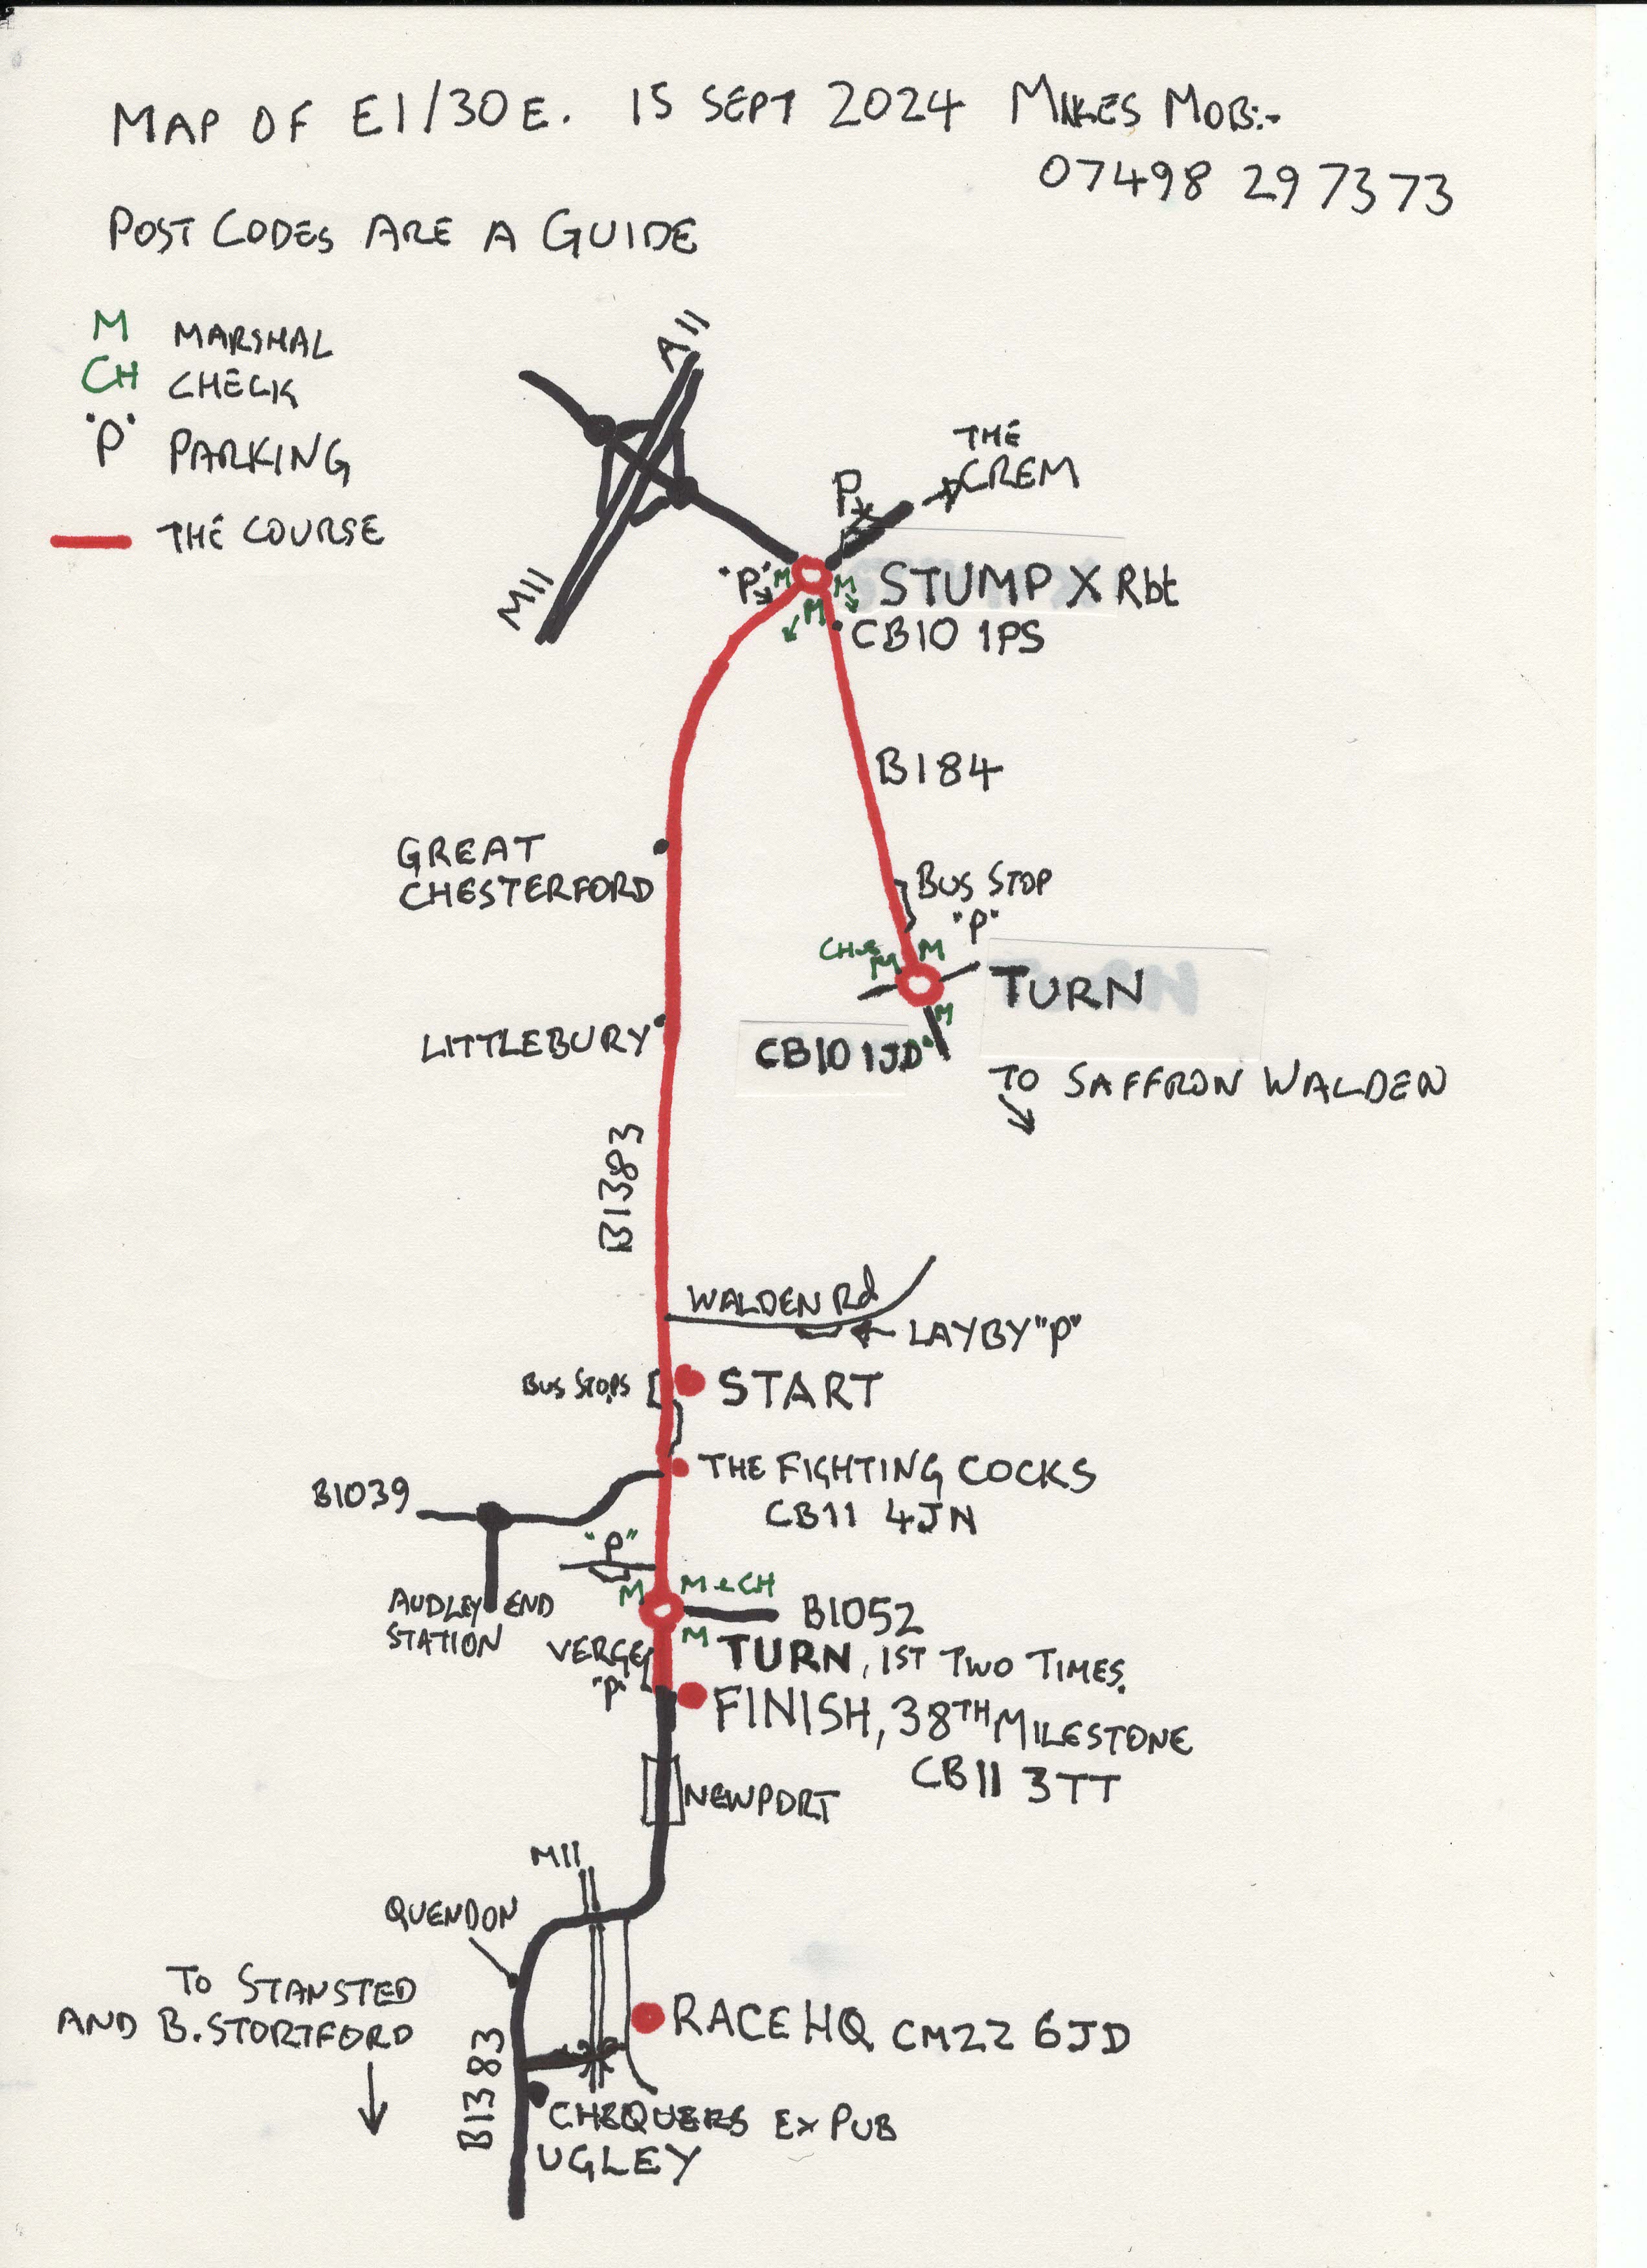 MAP OF E1/30E. 15 SEPT 2024 MIKES MOB:-
07498 297373
POST CODES ARE A GUIDE
M MARSHAL
CH CHECK
"P" PARKING
THE COURSE
A11
M11
THE
CREM
P
"P" M M
M
STUMP X Rbt
CB10 1PS
B184
GREAT
CHESTERFORD
BUS STOP
"P"
CH &
M M
TURN
M
CB10 1JD
LITTLEBURY
TO SAFFRON WALDEN
B1383
WALDEN Rd
LAYBY "P"
BUS STOPS
START
THE FIGHTING COCKS
CB11 4JN
B1039
"P"
M M & CH
B1052
AUDLEY END
STATION
M
TURN, 1ST TWO TIMES.
VERGE
"P"
FINISH, 38TH MILESTONE
CB11 3TT
NEWPORT
M11
QUENDON
TO STANSTED
AND B.STORTFORD
RACE HQ CM22 6JD
B1383
CHEQUERS EX PUB
UGLEY